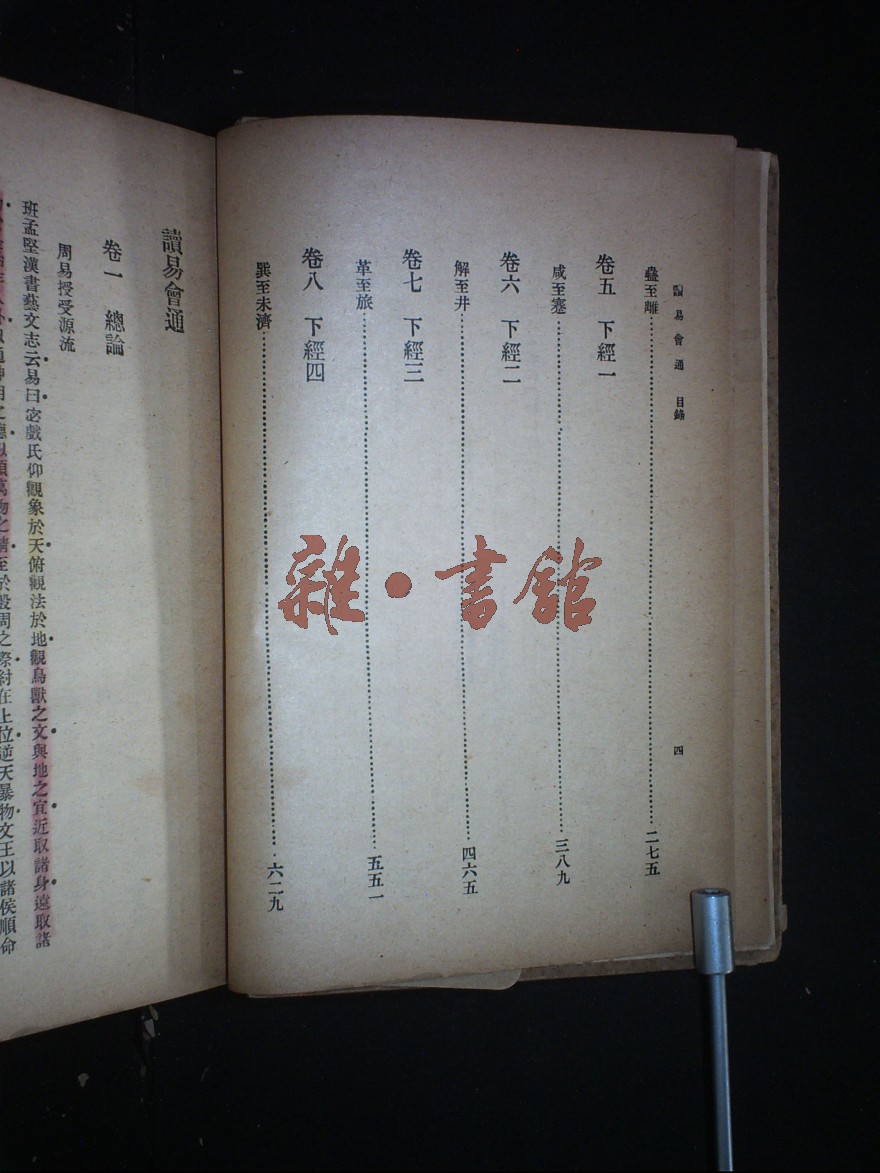 讀易會通 目錄
四
蠱至離 二七五
卷五 下經一
咸至蹇 三八九
卷六 下經二
解至井 四六五
卷七 下經三
革至旅 五五一
卷八 下經四
巽至未濟 六二九
讀易會通
卷一 總論
周易授受源流
班孟堅漢書藝文志云易曰宓戲氏仰觀象於天俯觀法於地觀鳥獸之文與地之宜近取諸身遠取諸
之德以類萬物之情至於殷周之際紂在上位逆天暴物文王以諸侯順命
雜·書館